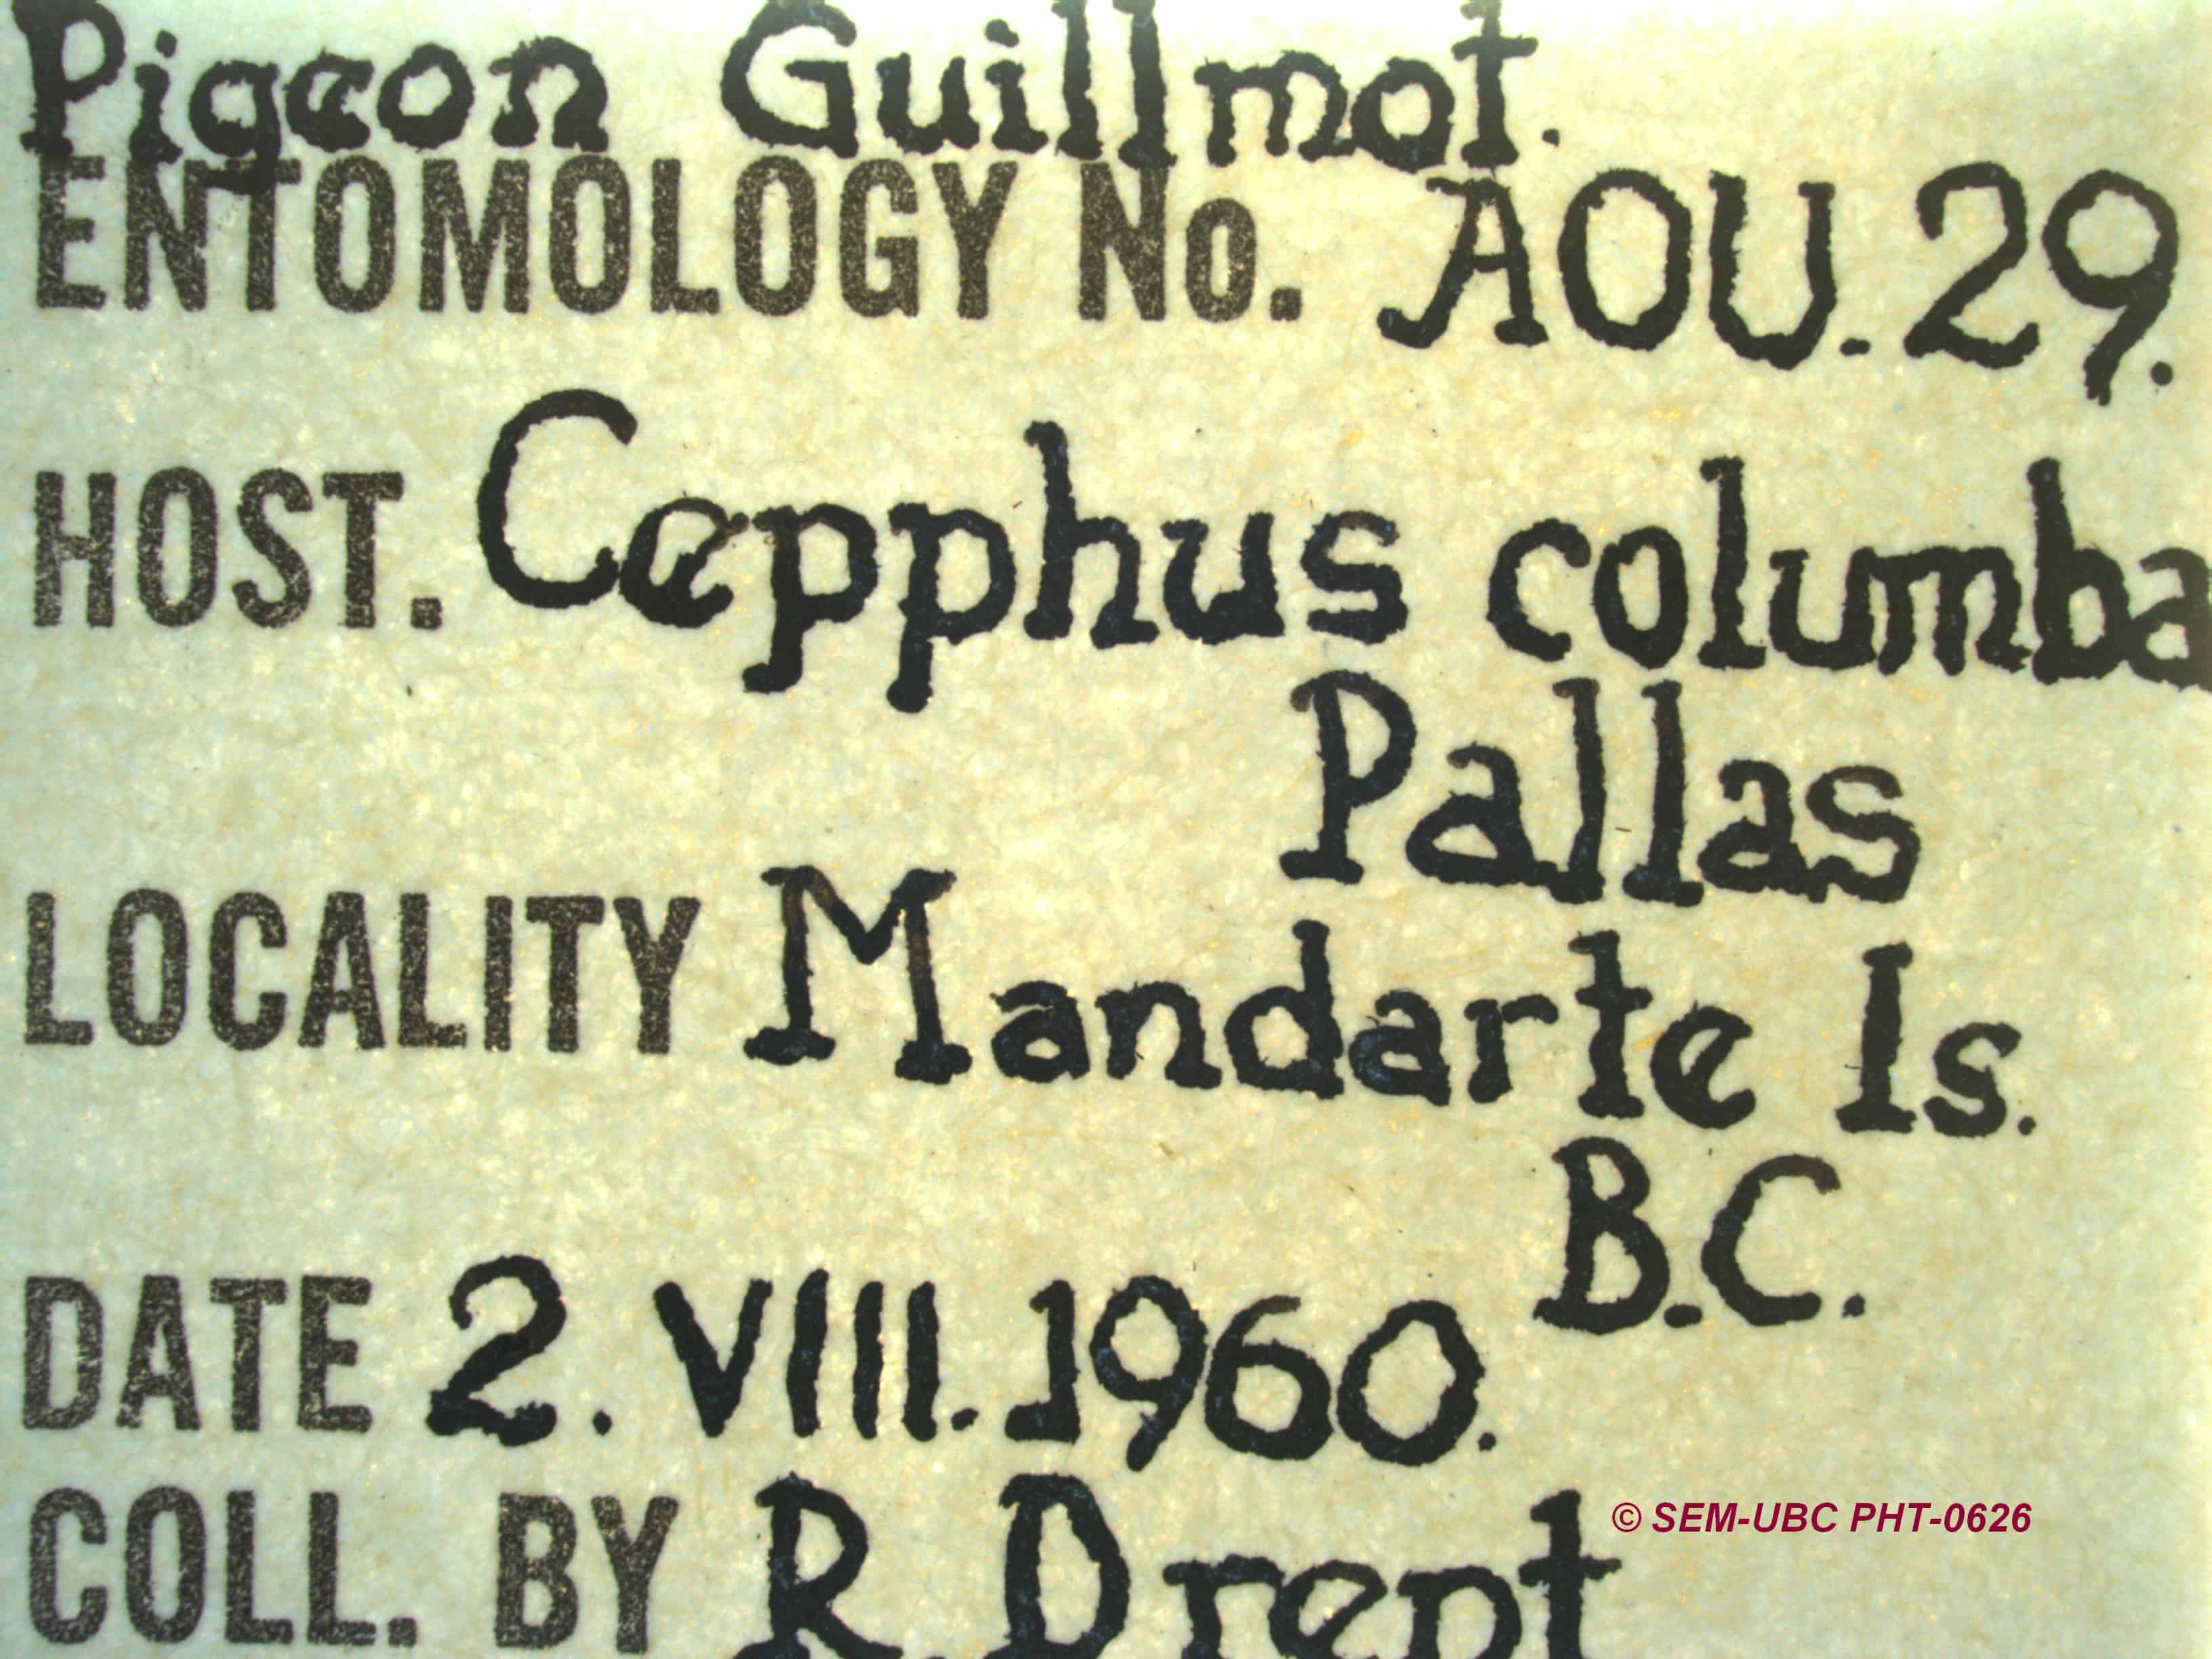 Pigeon Guillmot.
ENTOMOLOGY No. AOU. 29.
HOST. Cepphus columba
Pallas
LOCALITY Mandarte Is.
B.C.
DATE 2. VIII. 1960.
COLL. BY R. Drent
© SEM-UBC PHT-0626